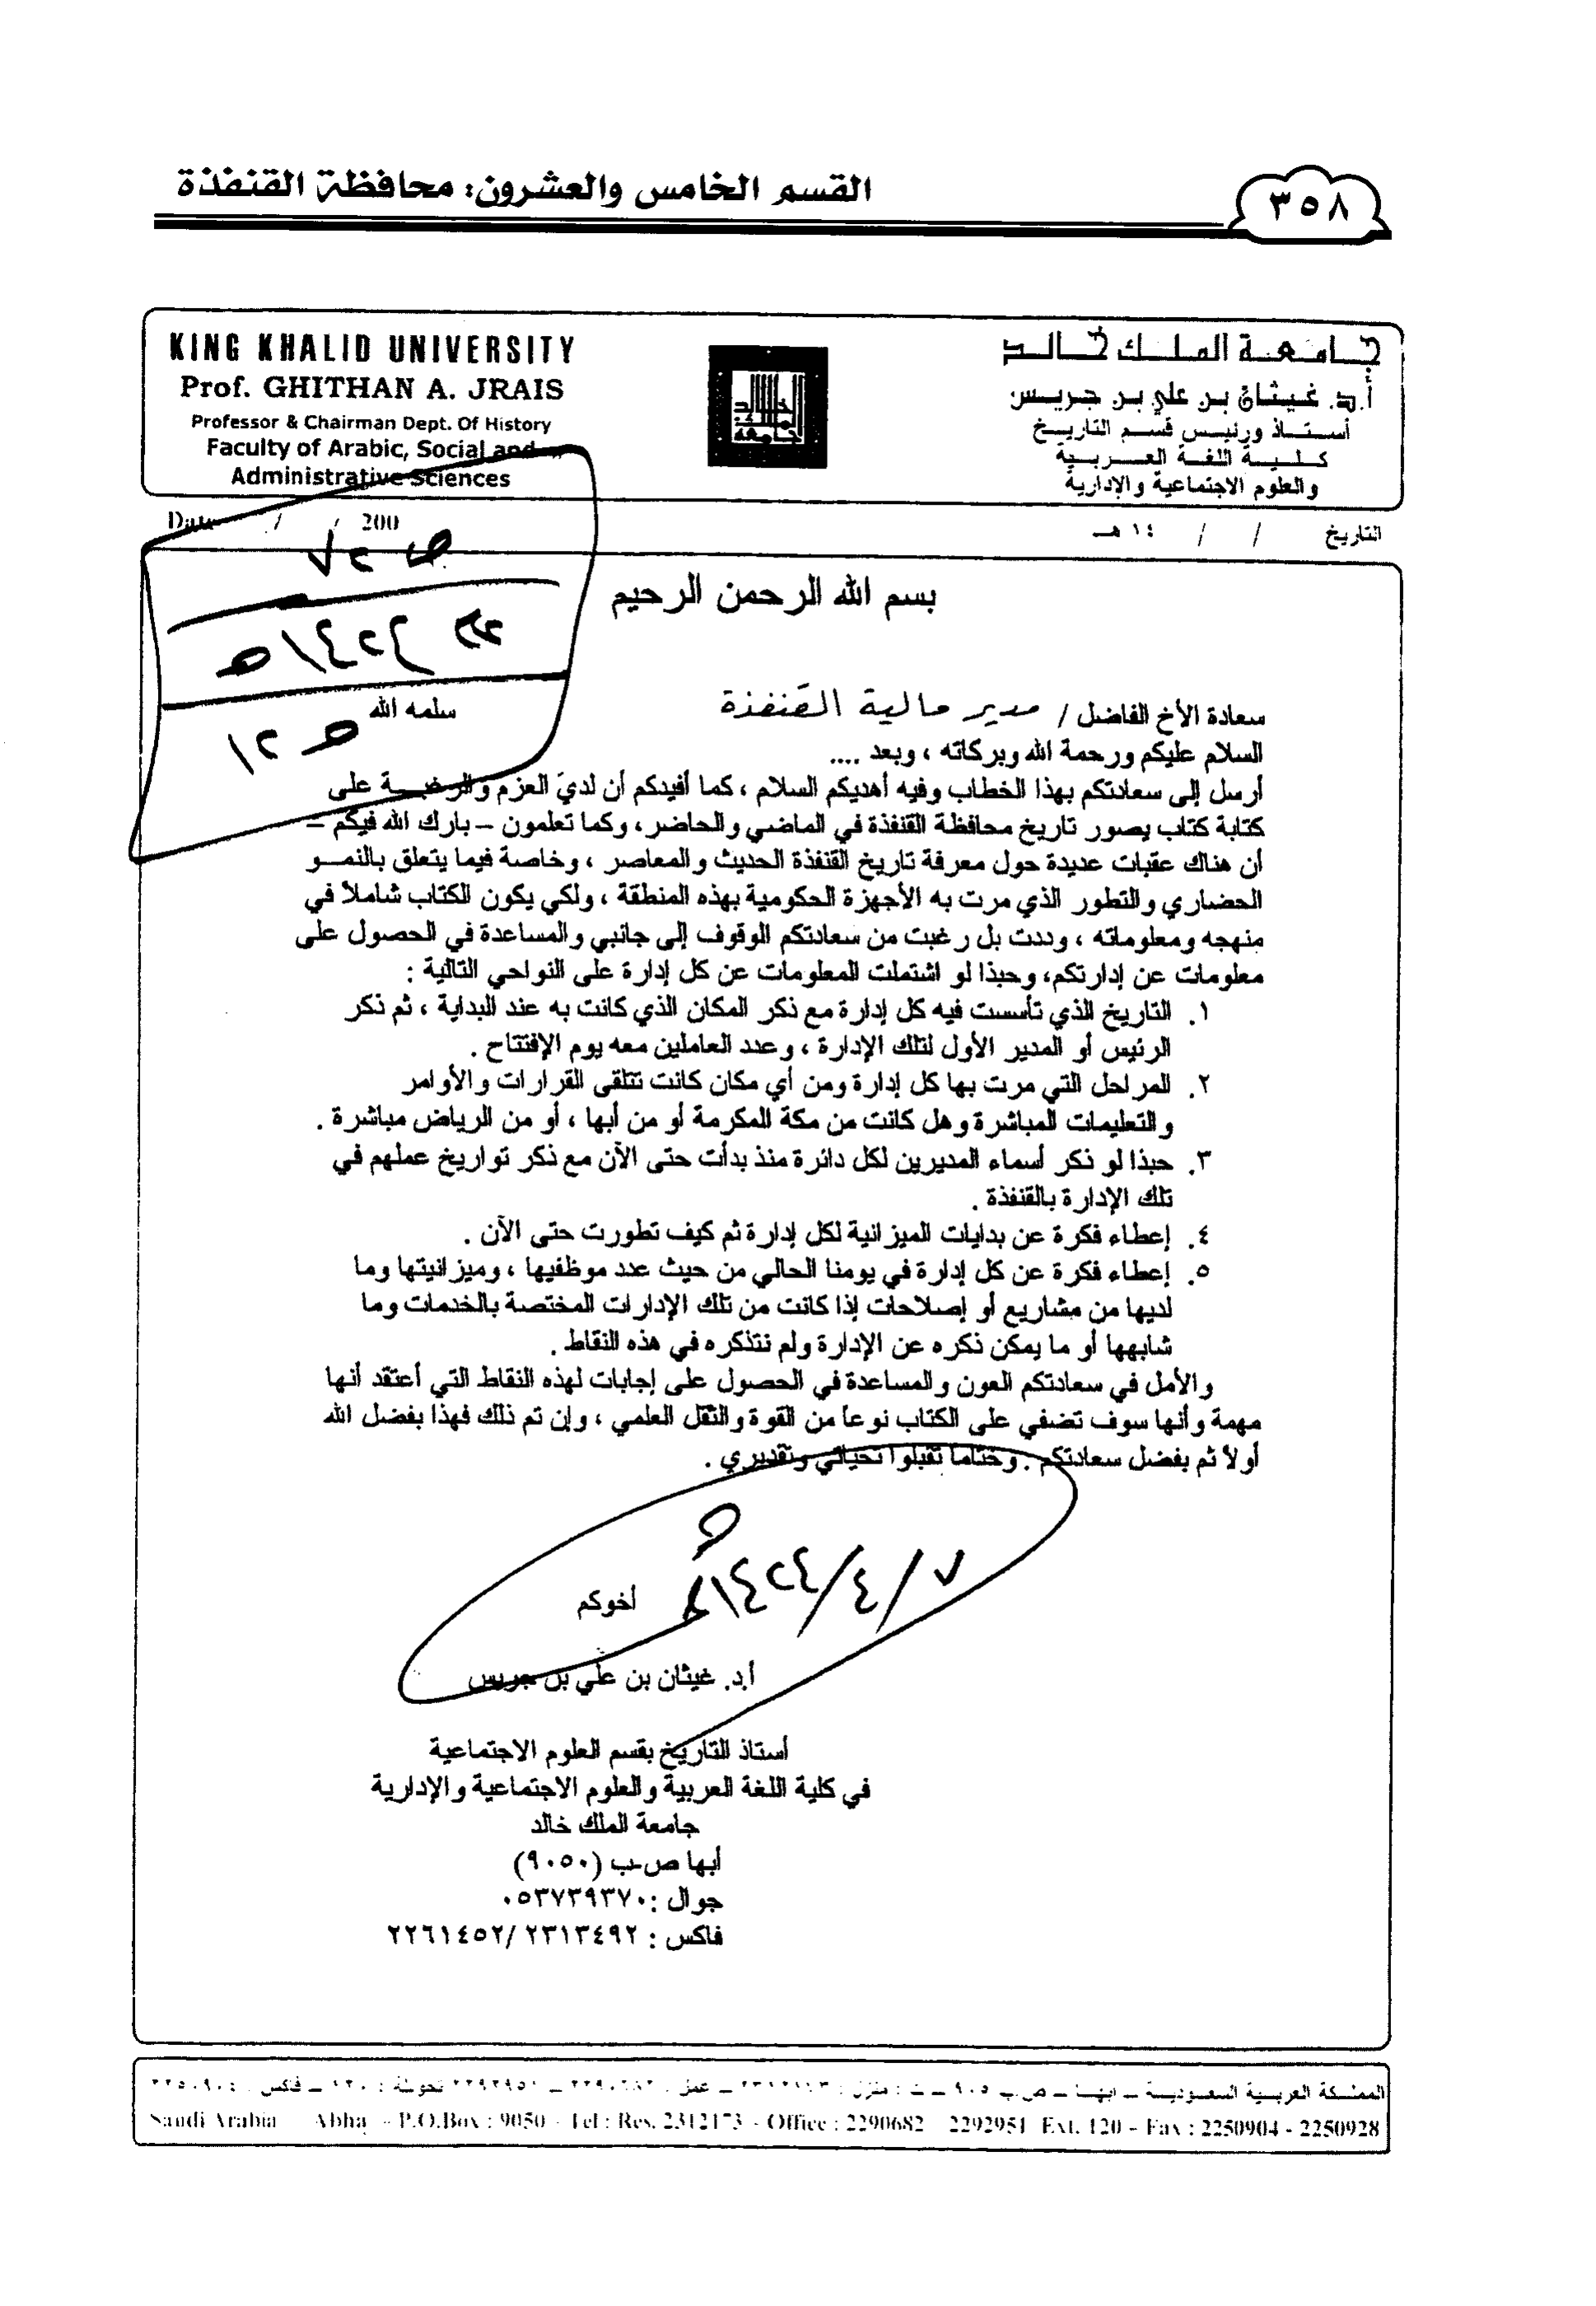 القسم الخامس والعشرون: محافظة القنفذة
٣٥٨
KING KHALID UNIVERSITY
Prof. GHITHAN A. JRAIS
Professor & Chairman Dept. Of History
Faculty of Arabic, Social and
Administrative Sciences
جامعة الملك خالد
أ.د. غيثان بن علي بن جريس
أستاذ ورئيس قسم التاريخ
كلية اللغة العربية
والعلوم الاجتماعية والإدارية
Date / / 200
التاريخ / / ١٤ هـ
بسم الله الرحمن الرحيم
سعادة الأخ الفاضل / مدير مالية القنفذة سلمه الله
السلام عليكم ورحمة الله وبركاته ، وبعد ....
أرسل إلى سعادتكم بهذا الخطاب وفيه أهديكم السلام ، كما أفيدكم أن لديَ العزم والرغبة على
كتابة كتاب يصور تاريخ محافظة القنفذة في الماضي والحاضر ، وكما تعلمون – بارك الله فيكم –
أن هناك عقبات عديدة حول معرفة تاريخ القنفذة الحديث والمعاصر ، وخاصة فيما يتعلق بالنمو
الحضاري والتطور الذي مرت به الأجهزة الحكومية بهذه المنطقة ، ولكي يكون الكتاب شاملاً في
منهجه ومعلوماته ، وددت بل رغبت من سعادتكم الوقوف إلى جانبي والمساعدة في الحصول على
معلومات عن إدارتكم، وحبذا لو اشتملت المعلومات عن كل إدارة على النواحي التالية :
١. التاريخ الذي تأسست فيه كل إدارة مع ذكر المكان الذي كانت به عند البداية ، ثم ذكر
الرئيس أو المدير الأول لتلك الإدارة ، وعدد العاملين معه يوم الإفتتاح .
٢. المراحل التي مرت بها كل إدارة ومن أي مكان كانت تتلقى القرارات والأوامر
والتعليمات المباشرة وهل كانت من مكة المكرمة أو من أبها ، أو من الرياض مباشرة .
٣. حبذا لو ذكر أسماء المديرين لكل دائرة منذ بدأت حتى الآن مع ذكر تواريخ عملهم في
تلك الإدارة بالقنفذة .
٤. إعطاء فكرة عن بدايات الميزانية لكل إدارة ثم كيف تطورت حتى الآن .
٥. إعطاء فكرة عن كل إدارة في يومنا الحالي من حيث عدد موظفيها ، وميزانيتها وما
لديها من مشاريع أو إصلاحات إذا كانت من تلك الإدارات المختصة بالخدمات وما
شابهها أو ما يمكن ذكره عن الإدارة ولم نتذكره في هذه النقاط .
والأمل في سعادتكم العون والمساعدة في الحصول على إجابات لهذه النقاط التي أعتقد أنها
مهمة وأنها سوف تضفي على الكتاب نوعاً من القوة والثقل العلمي ، وإن تم ذلك فهذا بفضل الله
أولاً ثم بفضل سعادتكم . وختاماً تقبلوا تحياتي وتقديري .
٧/٤/١٤٢٤هـ
أخوكم
أ.د. غيثان بن علي بن جريس
أستاذ التاريخ بقسم العلوم الاجتماعية
في كلية اللغة العربية والعلوم الاجتماعية والإدارية
جامعة الملك خالد
أبها ص-ب (٩٠٥٠)
جوال : ٠٥٣٧٣٩٣٧٠
فاكس : ٢٣١٣٤٩٢ /٢٢٦١٤٥٢
المملكة العربية السعودية – أبها –
Saudi Arabia Abha - P.O.Box : 9050 - Tel : Res. 2312173 - Office : 2290682 2292951 Ext. 120 - Fax : 2250904 - 2250928